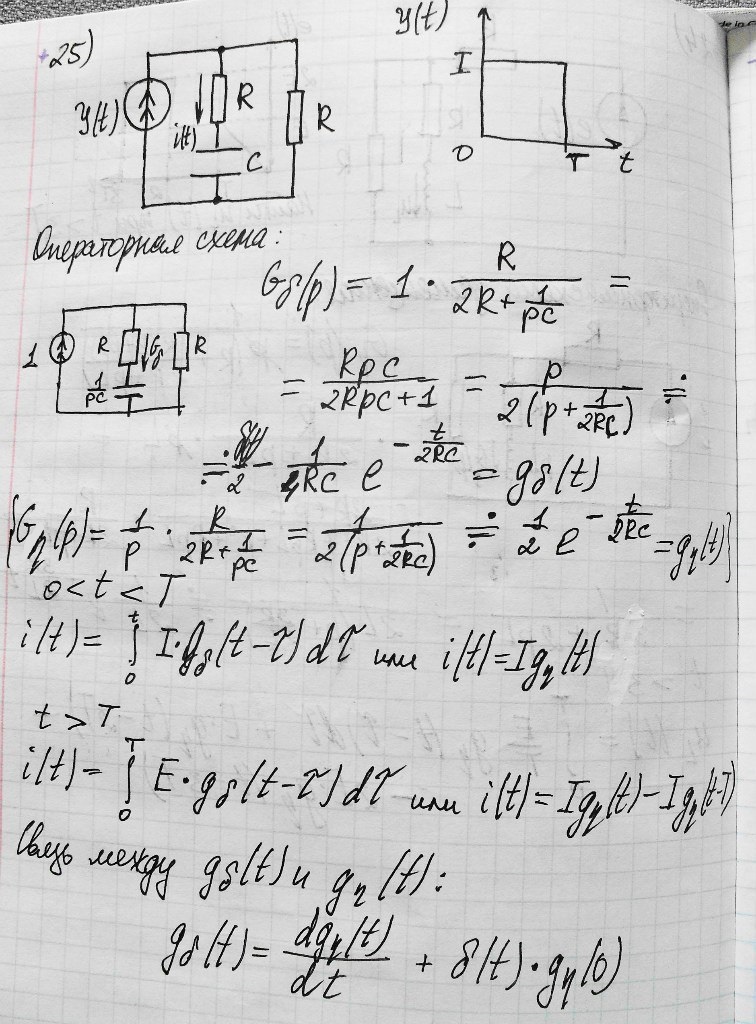 +25)
У(t)
I
0
T
t
У(t)
i(t)
R
C
R
Операторная схема:
1
R
1/pC
Gδ
R
Gδ(p) = 1 · R/(2R + 1/pC) =
= RpC/(2RpC+1) = p/(2(p + 1/2RC)) ≓
≓ /2 - 1/4RC e^(-t/2RC) = gδ(t)
{Gη(p) = 1/p · R/(2R + 1/pC) = 1/(2(p + 1/2RC)) ≓ 1/2 e^(-t/2RC) = gη(t)}
0 < t < T
i(t) = ∫₀ᵗ I·gδ(t-τ)dτ или i(t)=Igη(t)
t > T
i(t) = ∫₀ᵀ E·gδ(t-τ)dτ или i(t)=Igη(t)-Igη(t-T)
Связь между gδ(t) и gη(t):
gδ(t) = dgη(t)/dt + δ(t)·gη(0)